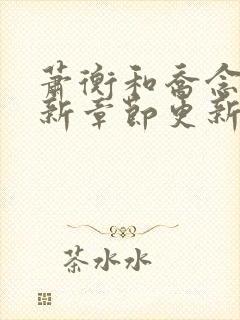 萧衡和乔念
新章节更新
茶水水